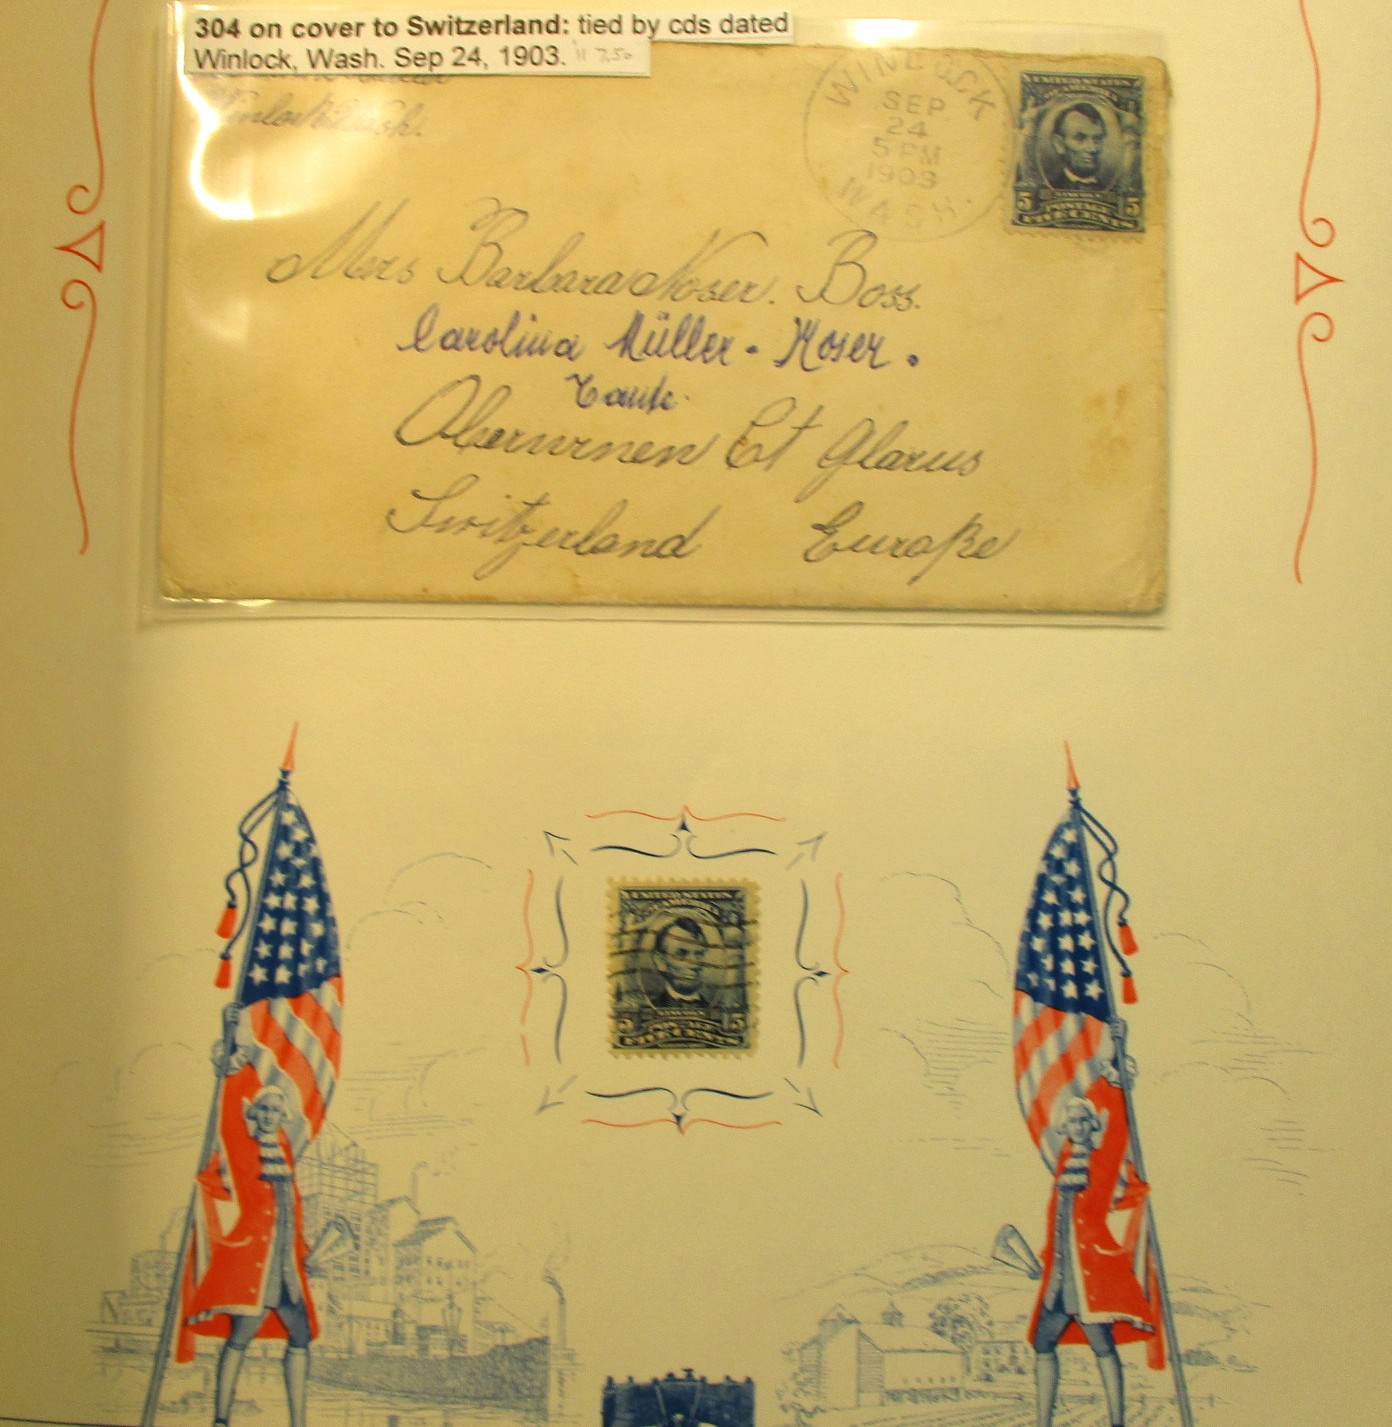 304 on cover to Switzerland: tied by cds dated
Winlock, Wash. Sep 24, 1903. 7.50
Winlock Wash.
WINLOCK
SEP
24
5 PM
1903
WASH.
UNITED STATES
OF AMERICA
LINCOLN
5 POSTAGE 5
FIVE CENTS
Mrs Barbara Noser. Boss.
Carolina Müller - Noser.
Oberurnen Ct Glarus
Switzerland Europe
UNITED STATES
OF AMERICA
LINCOLN
5 POSTAGE 5
FIVE CENTS